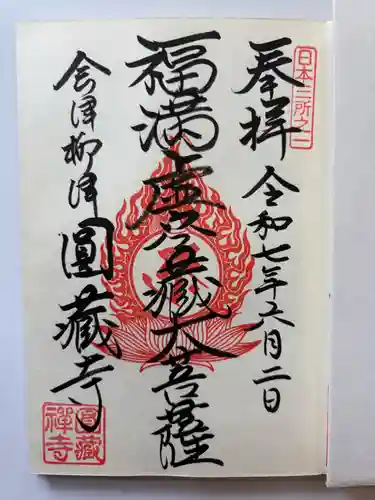 日本三所之一
奉拝 令和七年六月二日
福満虚空蔵大菩薩
会津柳津 圓藏寺
圓藏禅寺